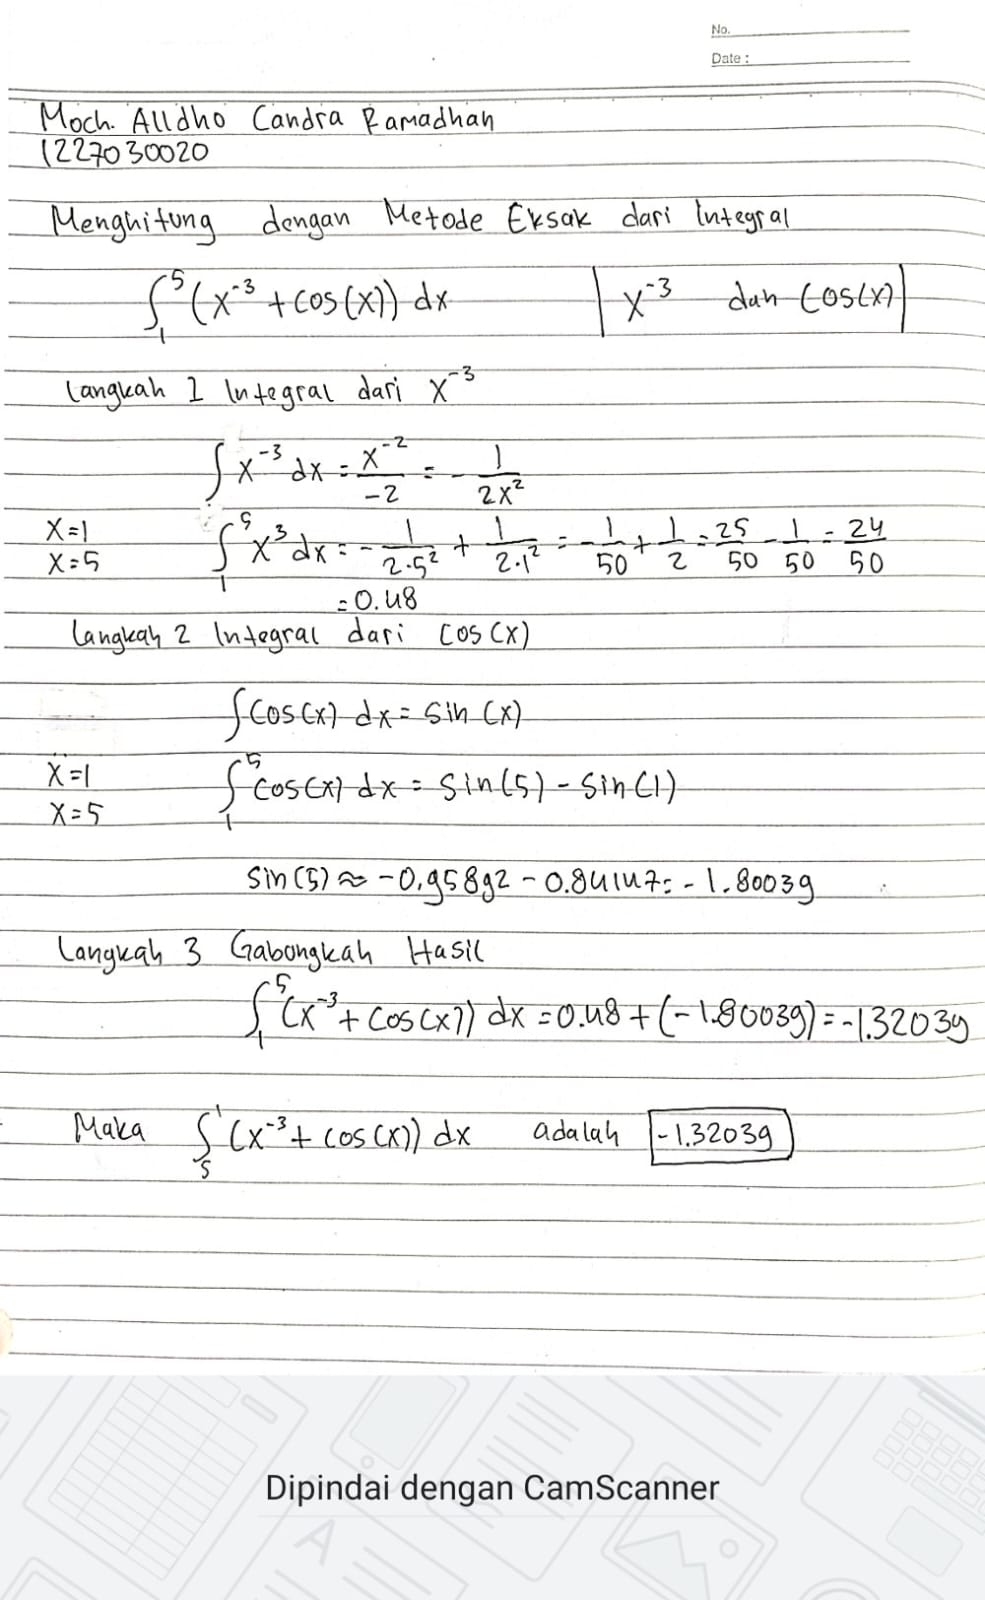 No.
Date :
Moch. Alldho Candra Ramadhan
1227030020
Menghitung dengan Metode Eksak dari Integral
∫₁⁵ (x⁻³ + cos(x)) dx | x⁻³ dan cos(x) |
Langkah 1 Integral dari x⁻³
∫ x⁻³ dx = x⁻²/-2 = - 1/2x²
x=1 ∫₁⁵ x³ dx = - 1/2·5² + 1/2·1² = - 1/50 + 1/2 = 25/50 - 1/50 = 24/50
x=5
= 0.48
Langkah 2 Integral dari cos(x)
∫ cos(x) dx = sin(x)
x=1 ∫₁⁵ cos(x) dx = sin(5) - sin(1)
x=5
sin(5) ≈ -0,95892 - 0.84147 = -1.80039
Langkah 3 Gabongkah Hasil
∫₁⁵ (x⁻³ + cos(x)) dx = 0.48 + (-1.80039) = -1.32039
Maka ∫₅¹ (x⁻³ + cos(x)) dx adalah -1.32039
Dipindai dengan CamScanner